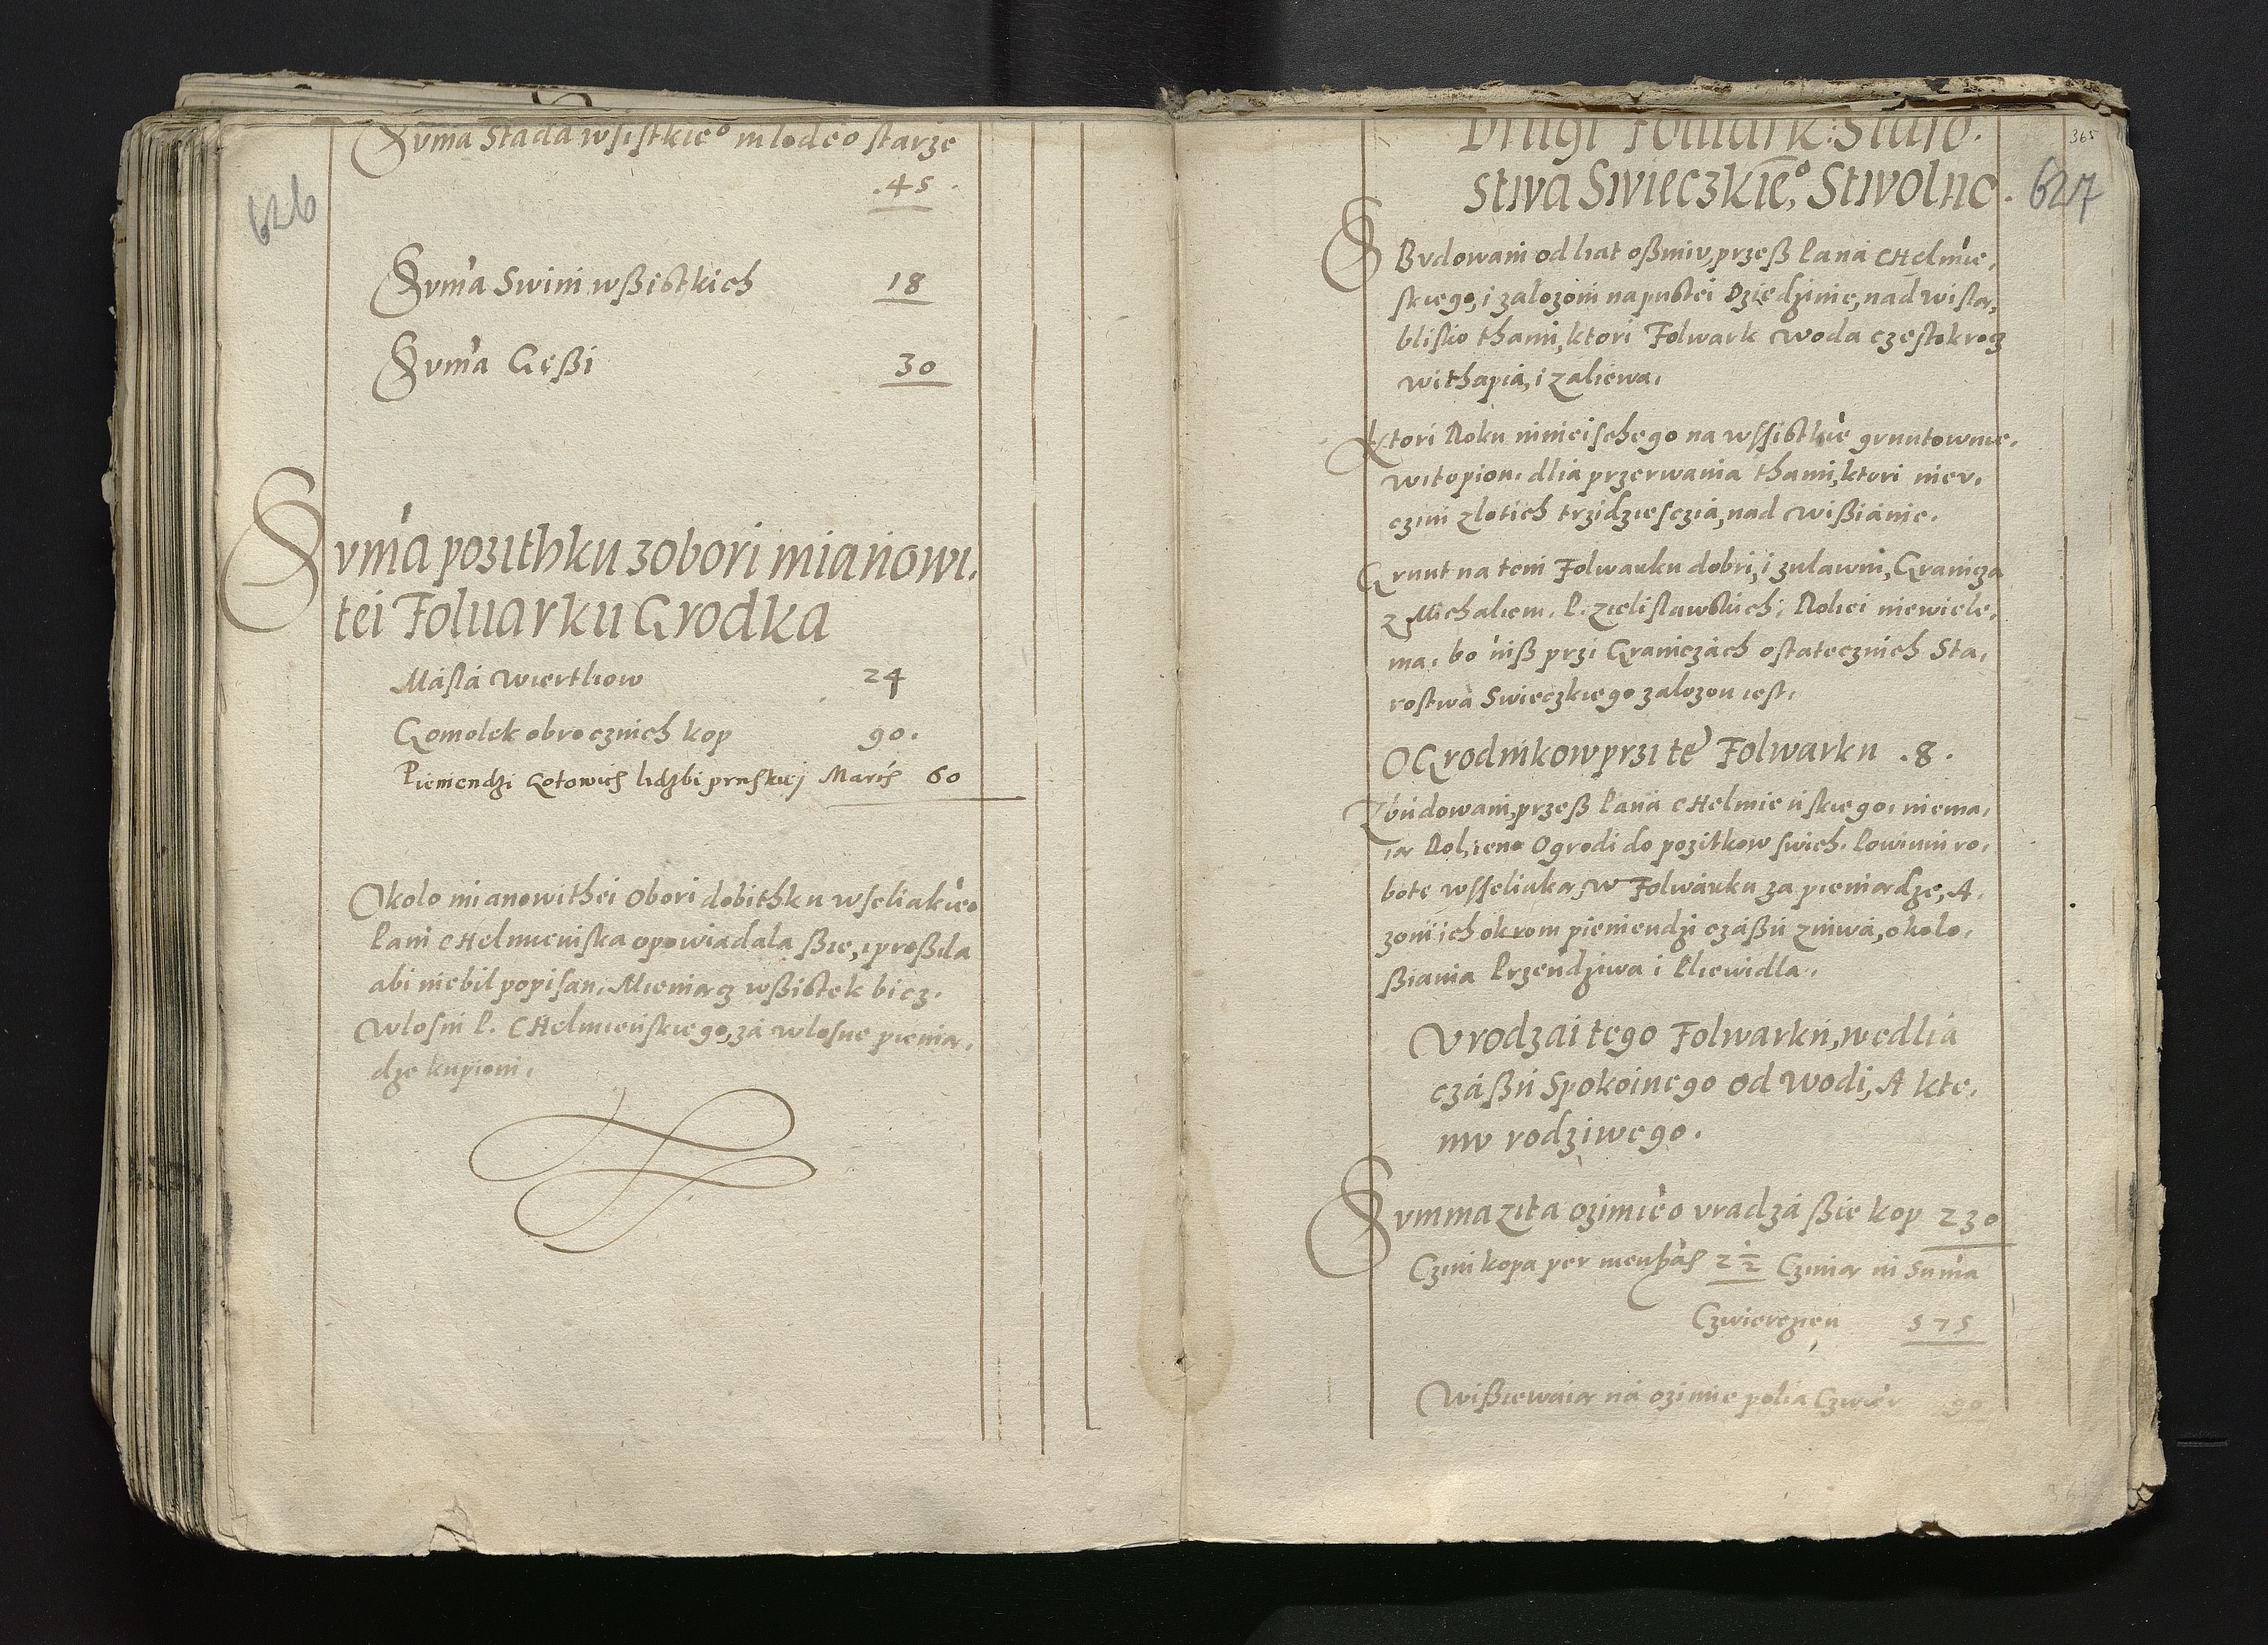 Suma Stada wsistkie° mlode° starze
.45.
626
Suma Swini wßistkich 18
Suma Gęßi 30
Suma pozithku z obori mianowi,
tei Folwarku Grodka
Másla wiertliow 24
Gomolek obrocznich kop 90.
Pieniendzi Gotowich lidzbi pruskiej Marcs 60
Okolo mianowithei Obori dobithku wseliakie°
Pani CHelmienska opowiadala ßie, i proßila
abi niebil popisan, Mieniącz wßistek bicz.
Wlosni P. CHelmieńskiego, zá wlosne pienią,
dze kupioni,
365
Drugi Folwark: Staro.
stwa Swieczkie°, Stwolno.
627
Budowani od liat oßmiu, przeß Paná CHelmie,
skiego, i zalozoni na pustei Dziedzinie, nad wislą,
blisko thami, ktori Folwark woda częstokrocz
withapiá, i zaliewa,
Ktori Roku ninieischego na wssistkie gruntownie,
witopion, dlia przerwania thami, ktori nieu,
czini zlotich trzidziesczia, nad wißianie.
Grunt na tem Folwarku dobri, i zulawni, Granicza
z Michaliem, P. Zielislawskich, Roliei niewiele,
ma, bo niß przi Graniczách ostatecznich Sta,
rostwa Swieczkiego zalozon iest,
OGrodnikow przi te Folwarku .8.
Zbudowani, przeß Paná CHelmieńskiego, niema,
ią Rol, ieno Ogrodi do pozitkow swich. Powinni ro,
bote wsseliaką, w Folwarku za pieniądze, A,
zoni ich okrom pieniendzi czáßu zniwá, okolo,
ßiania Przendziwa i Pliewidla,
Urodzai tego Folwarku, wedliá
czáßu Spokoinego od Wodi, A kte,
mu rodziwego.
Summa zita ozimie° uradzá ßie kop 230
Czini kopa per mensuras 2 1/2 Czinią in Suma
Czwierczien 575
Wißiewaią ná ozimie polia Czwier 90